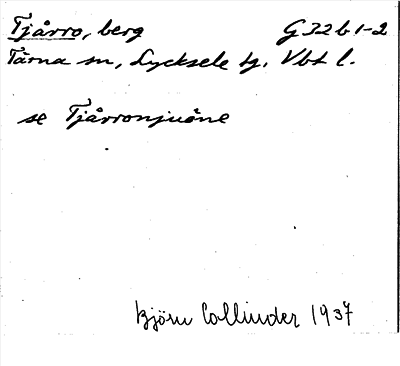 Tjårro, berg G 32 b 1-2
Tärna sn, Lycksele tg. Vbt l.
se Tjårronjuöne
Björn Collinder 1937